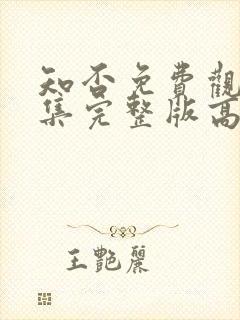 知否免費觀
集完整版高
王艷麗